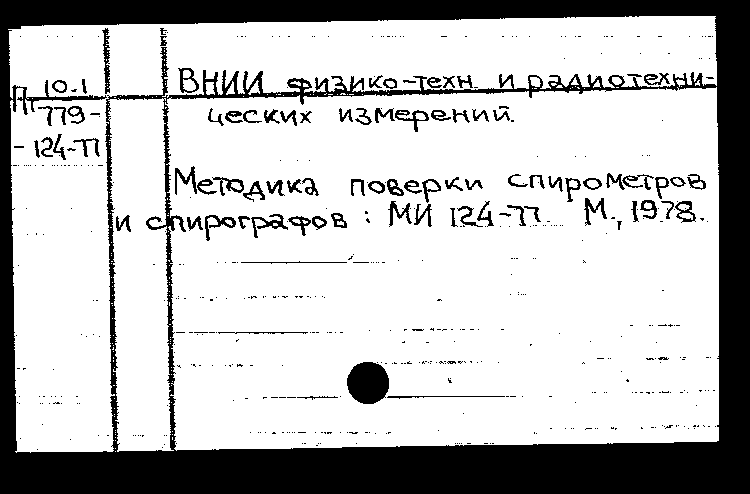 Пт 10-1
779-
- 124-77
ВНИИ физико-техн и радиотехни-
ческих измерений.
Методика поверки спирометров
и спирографов : МИ 124-77. М., 1978.